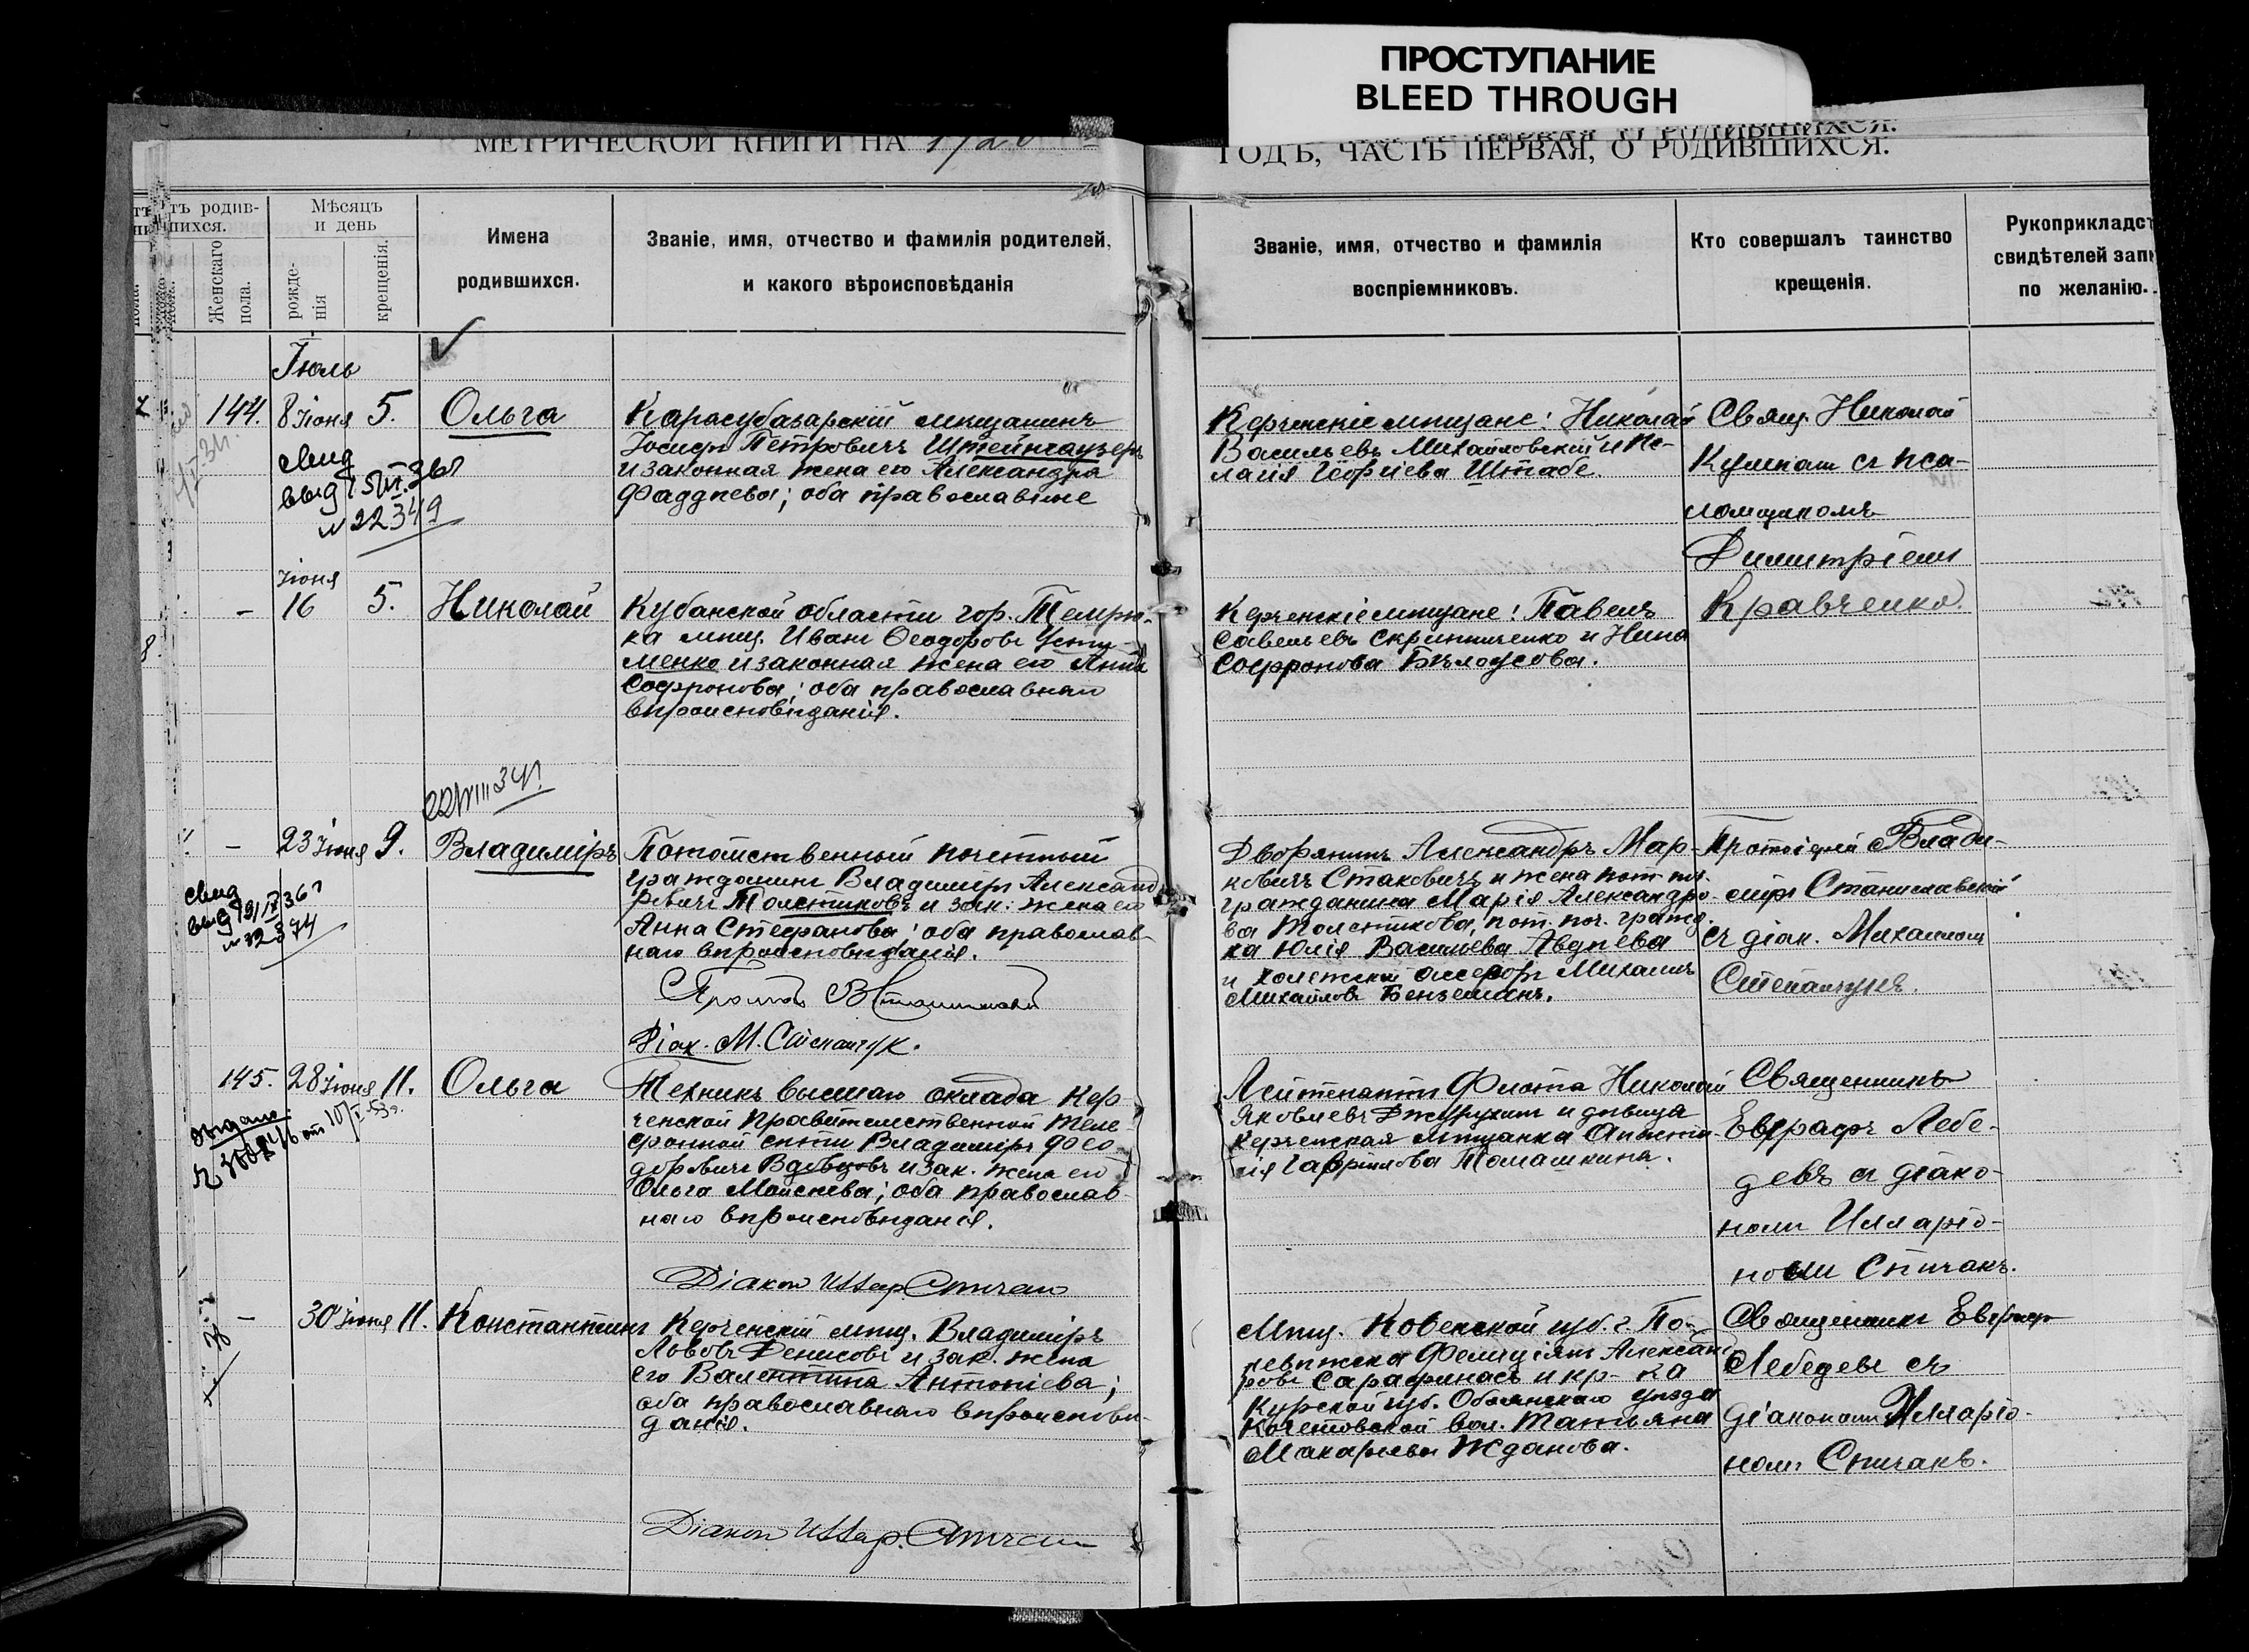 ПРОСТУПАНИЕ
BLEED THROUGH
МЕТРИЧЕСКОЙ КНИГИ НА 1920
ГОДЪ, ЧАСТЬ ПЕРВАЯ, О РОДИВШИХСЯ.
тъ родив-
шихся.
Женскаго
пола.
Мѣсяцъ
и день
рожде-
нія
крещенія.
Имена
родившихся.
Званіе, имя, отчество и фамилія родителей,
и какого вѣроисповѣданія
Званіе, имя, отчество и фамилія
воспріемниковъ.
Кто совершалъ таинство
крещенія.
Рукоприкладст
свидѣтелей запи
по желанію.
Іюль
144. 8 Іюня 5. Ольга
свид
выд
№ 22349
Карасубазарскій мѣщанинъ
Іосифъ Петровичъ Штейнгаузеръ
и законная жена его Александра
Фаддѣева; оба православные
Керченскіе мѣщане: Николай
Васильевъ Михайловскій и Пе-
лагія Георгіева Штабе.
Свящ. Николай
съ пса-
ломщикомъ
Димитріемъ
Кравченко.
Іюня
16 5. Николай
Кубанской области гор. Темрю-
ка мѣщ. Иванъ Ѳеодоровъ Усти-
менко и законная жена его Анна
Софронова; оба православнаго
вѣроисповѣданія.
Керченскіе мѣщане: Павелъ
Савельевъ Скрипниченко и Нина
Софронова Бѣлоусова.
– 23 Іюня 9. Владиміръ
свид
выд
Потомственный почетный
гражданинъ Владиміръ Александ
ровичъ Толстиковъ и зак. жена его
Анна Стефанова; оба православ-
наго вѣроисповѣданія.
Діак. М. Степанчук.
Дворянинъ Александръ Мар-
ковичъ Стаковичъ и жена пот. поч.
гражданина Марія Александро-
ва Толстикова, пот. поч. гражд.
ка Юлія Васильева Авдѣева
и колежскій ассесоръ Михаилъ
Михайловъ Бенземанъ.
Протоіерей Влади-
міръ Станиславскій
съ діак. Михаиломъ
Степанчукъ.
145. 28 Іюня 11. Ольга
Техникъ высшаго оклада Кер-
ченской Правительственной теле-
фонной сѣти Владиміръ Ѳео-
доровичъ Вдовцовъ и зак. жена его
Ольга Моисеева; оба православ-
наго вѣроисповѣданія.
Діакон Иллар Спичак
Лейтенантъ Флота Николай
Яковлевъ и дѣвица
Керченская мѣщанка Анаста-
сія Гавріилова Томашкина.
Священникъ
Евграфъ Лебе-
девъ съ діако-
номъ Илларіо-
номъ Спичакъ.
– 30 Іюня 11. Константинъ
Керченскій мѣщ. Владиміръ
Львовъ Денисовъ и зак. жена
его Валентина Антоніева;
оба православнаго вѣроисповѣ-
данія.
Діакон Иллар. Спичак
Мѣщ. Ковенской губ. г. По-
невѣжска Фелиціянъ Александ
ровъ Сарафинасъ и кр-ка
Курской губ. Обоянскаго уѣзда
Кочетовской вол. Татьяна
Макарьева Жданова.
Священникъ Евграфъ
Лебедевъ съ
діакономъ Илларіо-
номъ Спичакъ.